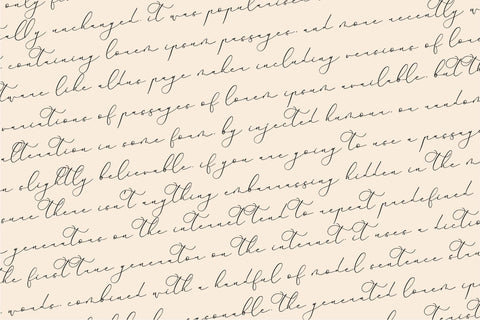 only f
ally unchanged. it was popularised
containing lorem ipsum passages, and more recently w
tware like aldus page maker including versions of lore
variations of passages of lorem ipsum available, but th
alteration in some form, by injected humour, or random
n slightly believable. if you are going to use a passage
sure there isn't anything embarrassing hidden in the m
generators on the internet tend to repeat predefined
the first true generator on the internet. it uses a diction
words, combined with a handful of model sentence stru
reasonable. the generated lorem ip